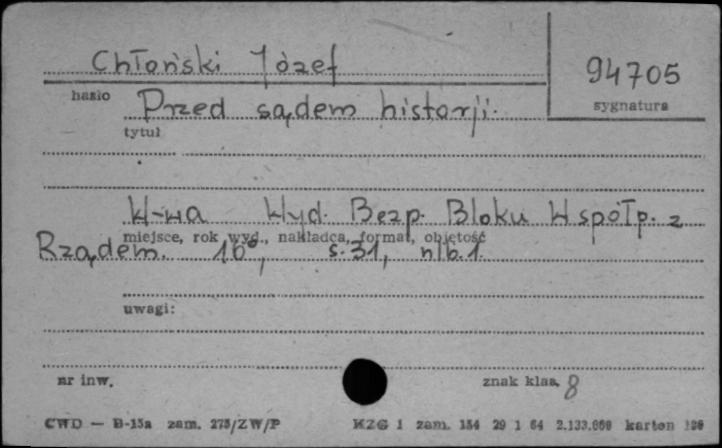 Chłoński Józef
94705
hasło
sygnatura
Przed sądem historji.
tytuł
W-wa Wyd. Bezp. Bloku Współp. z
miejsce, rok wyd., nakładca, format, objętość
Rządem. 16°, s. 31, nlb. 1.
uwagi:
nr inw.
znak klas. 8
CWD — B-15a zam. 275/ZW/P
KZG 1 zam. 154 29 1 64 2.133.000 karton